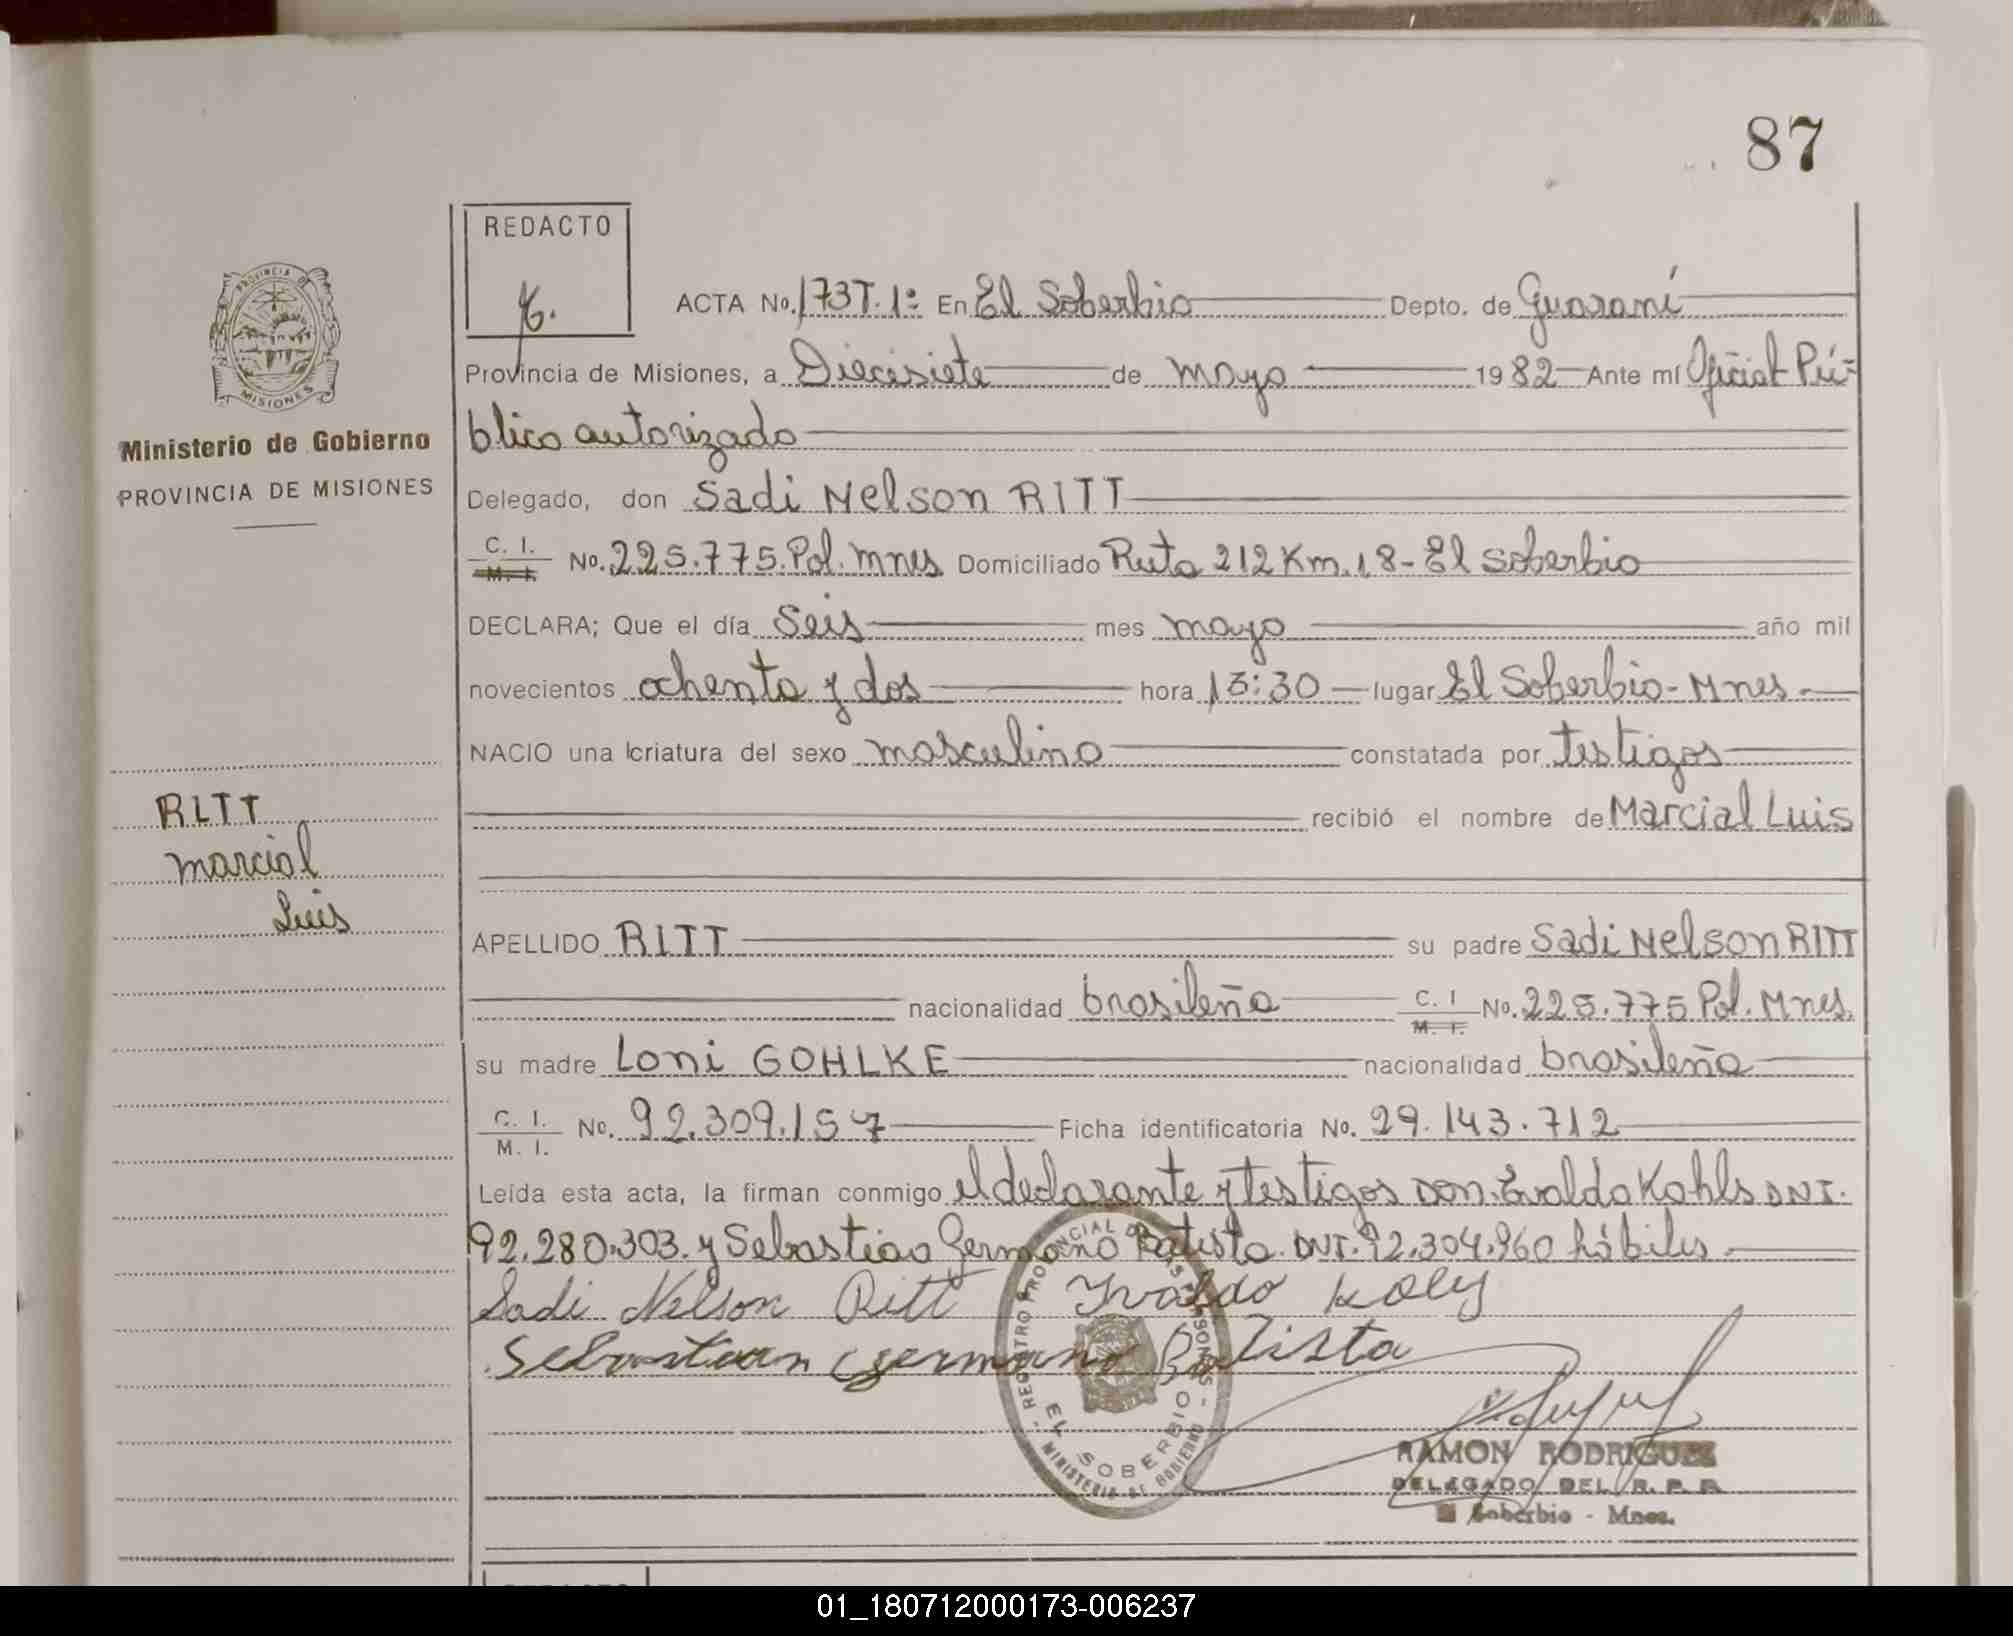 87
REDACTO
ACTA No. 173 T. 1º En El Soberbio Depto. de Guaraní
Provincia de Misiones, a Diecisiete de mayo 1982 Ante mí Oficial Pú-
blico autorizado
Delegado, don Sadi Nelson RITT
C. I. M. I. No. 225.775. Pol. Mnes Domiciliado Ruta 212 Km. 18 - El Soberbio
DECLARA; Que el día Seis mes mayo año mil
novecientos ochenta y dos hora 13:30 lugar El Soberbio - Mnes.
NACIO una criatura del sexo masculino constatada por testigos
recibió el nombre de Marcial Luis
APELLIDO RITT su padre Sadi Nelson RITT
nacionalidad brasileña C. I M. I. No. 225.775 Pol. Mnes.
su madre Loni GOHLKE nacionalidad brasileña
C. I. M. I. No. 92.309.157 Ficha identificatoria No. 29.143.712
Leída esta acta, la firman conmigo el declarante y testigos Don. Evaldo Kohls DNI.
92.280.303. y Sebastiao Germano Batista. DNI. 92.304.960 hábiles.
Sadi Nelson Ritt Ivaldo
Sebastian Germano Batista
PROVINCIA DE
MISIONES
Ministerio de Gobierno
PROVINCIA DE MISIONES
RITT
Marcial
Luis
REGISTRO PROVINCIAL DE LAS PERSONAS
EL SOBERBIO
MINISTERIO DE GOBIERNO
RAMON RODRIGUEZ
DELEGADO DEL R. P. P.
Soberbio - Mnes.
REDACTO
01_180712000173-006237